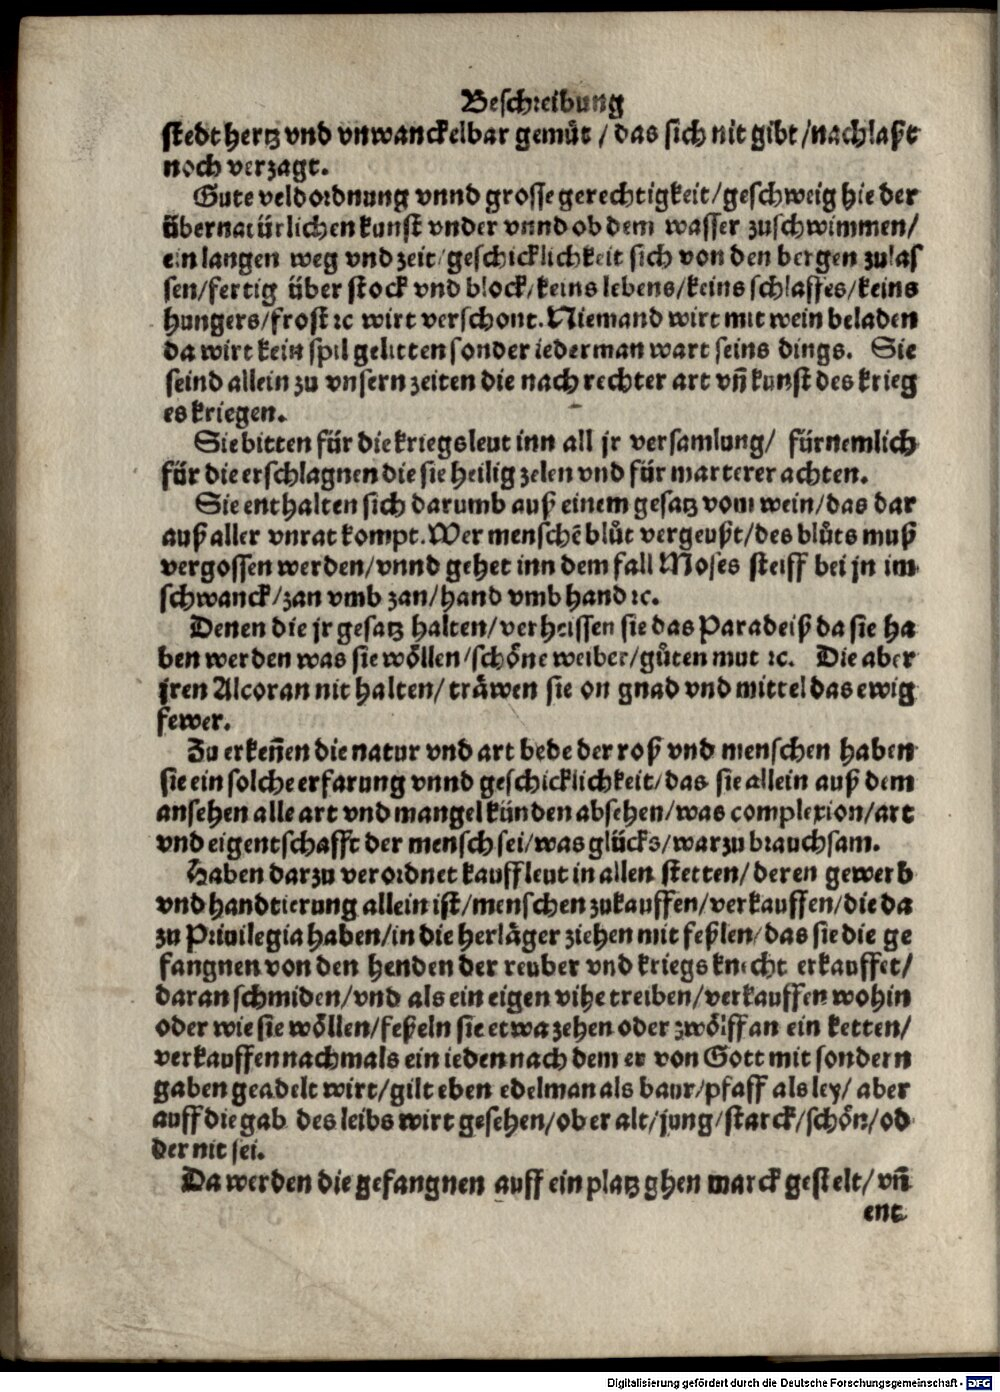 Beschreibung
stedt hertz vnd vnwanckelbar gemuͤt / das sich nit gibt / nachlaßt
noch verzagt.
Gute veldordnung vnnd grosse gerechtigkeit / geschweig hie der
übernatürlichen kunst vnder vnnd ob dem wasser zuschwimmen /
ein langen weg vnd zeit / geschicklichkeit sich von den bergen zulas
sen / fertig über stock vnd block / keins lebens / keins schlaffes / keins
hungers / frost ꝛc wirt verschont. Niemand wirt mit wein beladen
da wirt kein spil gelitten sonder iederman wart seins dings. Sie
seind allein zu vnsern zeiten die nach rechter art vñ kunst des krieg
es kriegen.
Sie bitten für die kriegsleut inn all jr versamlung / fürnemlich
für die erschlagnen die sie heilig zelen vnd für marterer achten.
Sie enthalten sich darumb auß einem gesatz vom wein / das dar
auß aller vnrat kompt. Wer menschẽ bluͤt vergeußt / des bluͤts muß
vergossen werden / vnnd gehet inn dem fall Moses steiff bei jn im
schwanck / zan vmb zan / hand vmb hand ꝛc.
Denen die jr gesatz halten / verheissen sie das Paradeiß da sie ha
ben werden was sie woͤllen / schoͤne weiber / guͤten mut ꝛc. Die aber
jren Alcoran nit halten / traͤwen sie on gnad vnd mittel das ewig
fewer.
Zu erkeñen die natur vnd art bede der roß vnd menschen haben
sie ein solche erfarung vnnd geschicklichkeit / das sie allein auß dem
ansehen alle art vnd mangel künden absehen / was complexion / art
vnd eigentschafft der mensch sei / was glücks / warzu brauchsam.
Haben darzu verordnet kauffleut in allen stetten / deren gewerb
vnd handtierung allein ist / menschen zukauffen / verkauffen / die da
zu Priuilegia haben / in die herlaͤger ziehen mit feßlen / das sie die ge
fangnen von den henden der reuber vnd kriegs knecht erkauffet /
daran schmiden / vnd als ein eigen vihe treiben / verkauffen wohin
oder wie sie woͤllen / feßeln sie etwa zehen oder zwoͤlff an ein ketten /
verkauffen nachmals ein ieden nach dem er von Gott mit sondern
gaben geadelt wirt / gilt eben edelman als baur / pfaff als ley / aber
auff die gab des leibs wirt gesehen / ob er alt / jung / starck / schoͤn / od
der nit sei.
Da werden die gefangnen auff ein platz ghen marck gestelt / vñ
ent
Digitalisierung gefördert durch die Deutsche Forschungsgemeinschaft - DFG